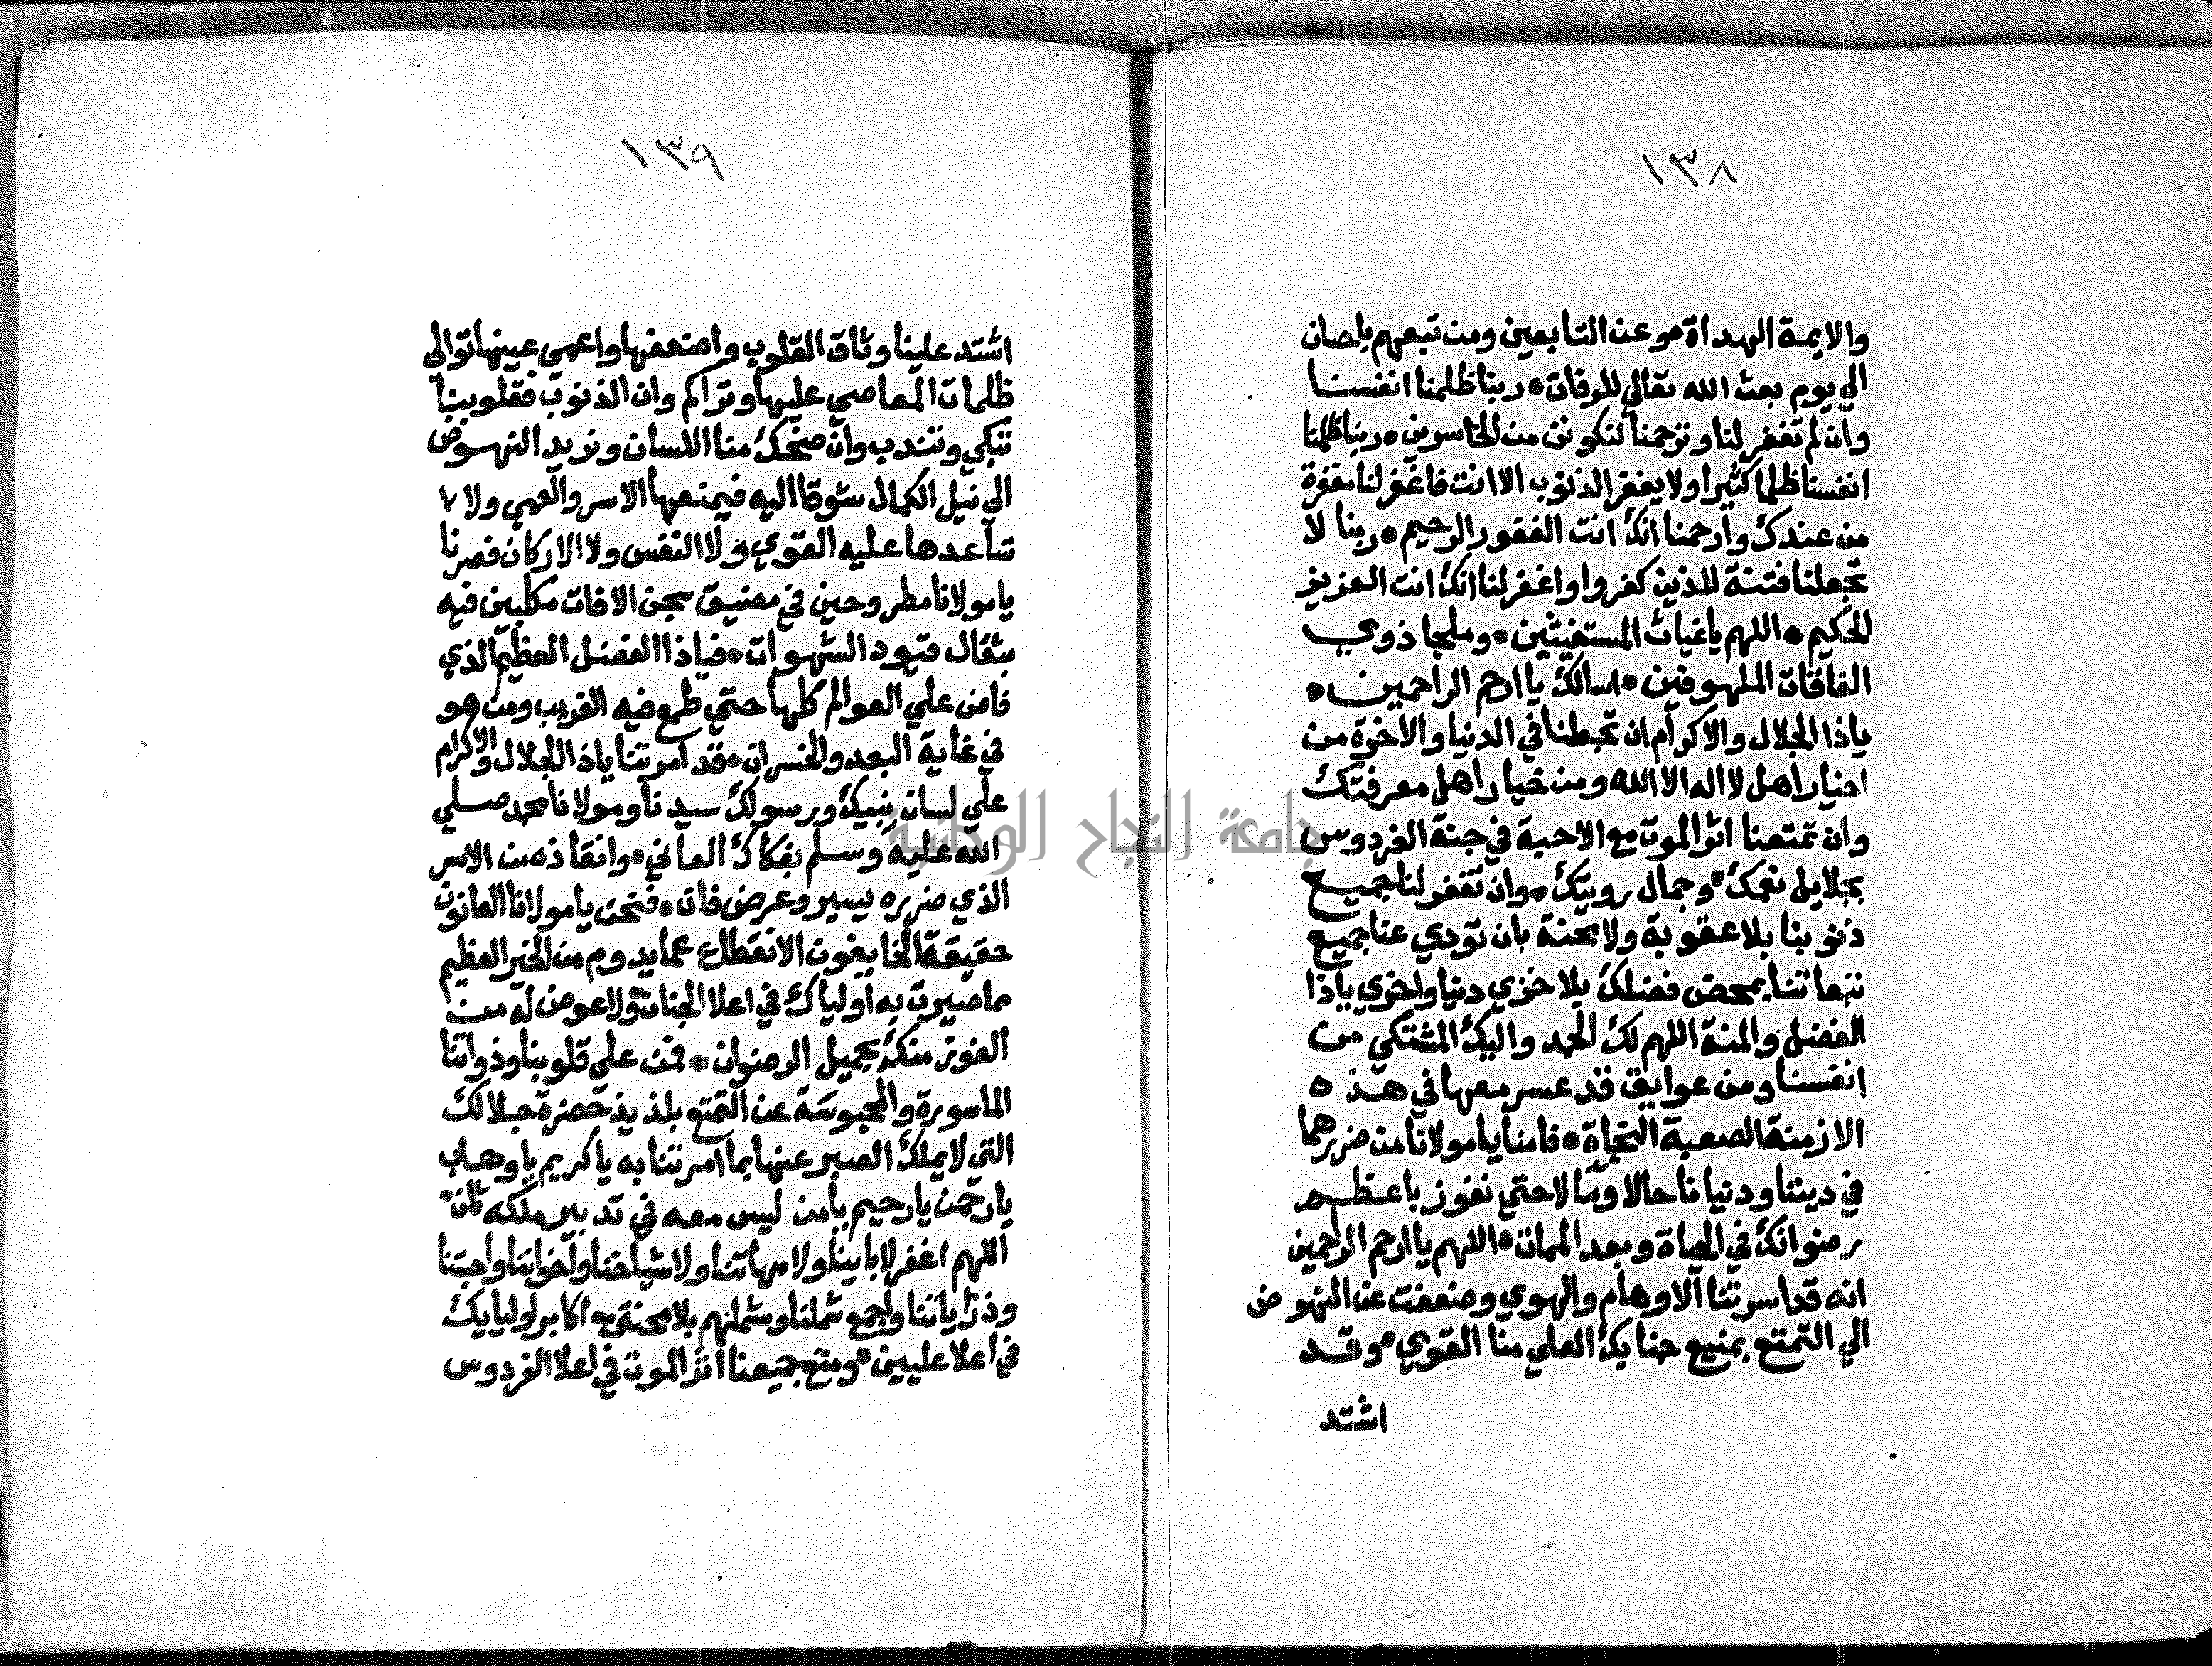 ١٣٨
والايمة الهداة وعن التابعين ومن تبعهم باحسان
الي يوم بعث الله تعالي للرفات ربنا ظلمنا انفسنا
وان لم تغفر لنا وترحمنا لنكونن من الخاسرين ربنا ظلمنا
انفسنا ظلما كثيرا ولا يغفر الذنوب الا انت فاغفر لنا مغفرة
من عندك وارحمنا انك انت الغفور الرحيم ربنا لا
تجعلنا فتنة للذين كفروا واغفر لنا انك انت العزيز
الحكيم اللهم ياغياث المستغيثين وملجا ذوي
الفاقات الملهوفين اسالك يا ارحم الراحمين
ياذا الجلال والاكرام ان تجعلنا في الدنيا والاخرة من
اخيار اهل لا اله الا الله ومن خيار اهل معرفتك
وان تمتعنا اثر الموت مع الاحبة في جنة الفردوس
بجلايل نعمك وجمال رويتك وان تغفر لنا جميع
ذنوبنا بلا عقوبة ولا محنة بان تودي عنا جميع
تبعاتنا بمحض فضلك بلا خزي دنيا واخري ياذا
الفضل والمنة اللهم لك الحمد واليك المشتكي من
انفسنا ومن عوايق قد عسر معها في هذه
الازمنة الصعبة النجاة فامنا يا مولانا من ضررهما
في ديننا ودنيانا حالا ومالا حتي نفوز باعظم
رضوانك في الحياة وبعد الممات اللهم يا ارحم الراحمين
انه قد اسرتنا الاوهام والهوي وضعفت عن النهوض
الي التمتع بمنيع جنابك العلي منا القوي وقد
اشتد
١٣٩
اشتد علينا وثاق القلوب واضعفها واعمي عينها توالي
ظلمات المعاصي عليها وتراكم وان الذنوب فقلوبنا
تبكي وتندب وان ضحك منا اللسان وتريد النهوض
الي نيل الكمال شوقا اليه فيمنعها الاسر والعمي ولا
تساعدها عليه القوي ولا النفس ولا الاركان فصرنا
يا مولانا مطروحين في مضيق سجن الافات مكبلين فيه
بثقال قيود الشهوات فياذا الفضل العظيم الذي
فاض علي العوالم كلها حتي طمع فيه القريب ومن هو
في غاية البعد والخسران قد امرتنا ياذا الجلال والاكرام
علي لسان نبيك ورسولك سيدنا ومولانا محمد صلي
الله عليه وسلم بفكاك العاني وانقاذه من الاسر
الذي ضرره يسير وعرض فان فنحن يا مولانا العانون
حقيقة الخايفون الانقطاع عما يدوم من الخير العظيم
مما صيرت به اولياك في اعلا الجنان ولا عوض له من
الفوز منك بجميل الرضوان فمن علي قلوبنا وذواتنا
الماسورة والمحبوسة عن التمتع بلذيذ حضرة جلالك
التي لا يملك الصبر عنها بما امرتنا به ياكريم ياوهاب
يا رحمن يا رحيم يا من ليس معه في تدبير ملكه ثان
اللهم اغفر لابايناولامهاتنا ولاشياخنا واخواننا واحبتنا
وذرياتنا واجمع شملنا وشملهم بلا محنة مع اكابر اوليايك
في اعلا عليين ومتع جميعنا اثر الموت في اعلا الفردوس
جامعة النجاح الوطنية